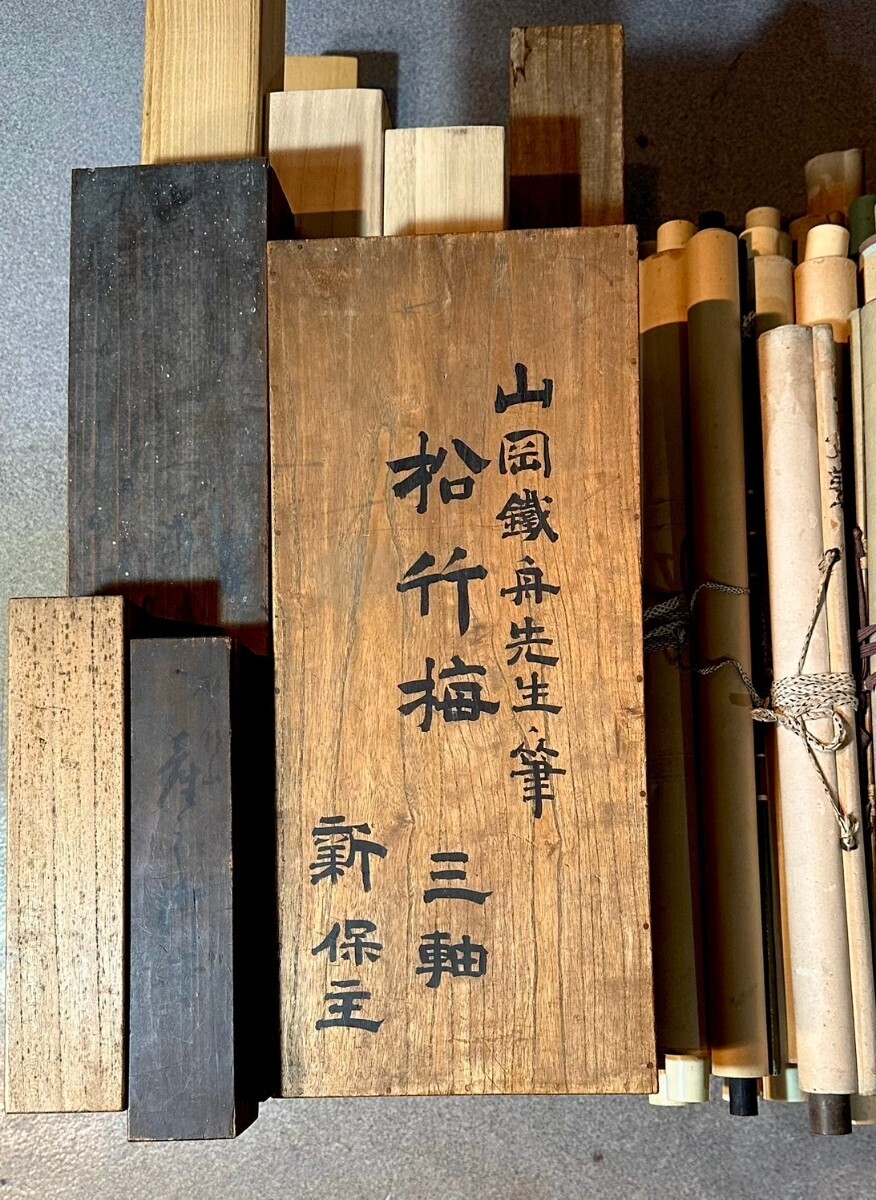 山岡鐵舟先生筆
松竹梅
三軸
新保主